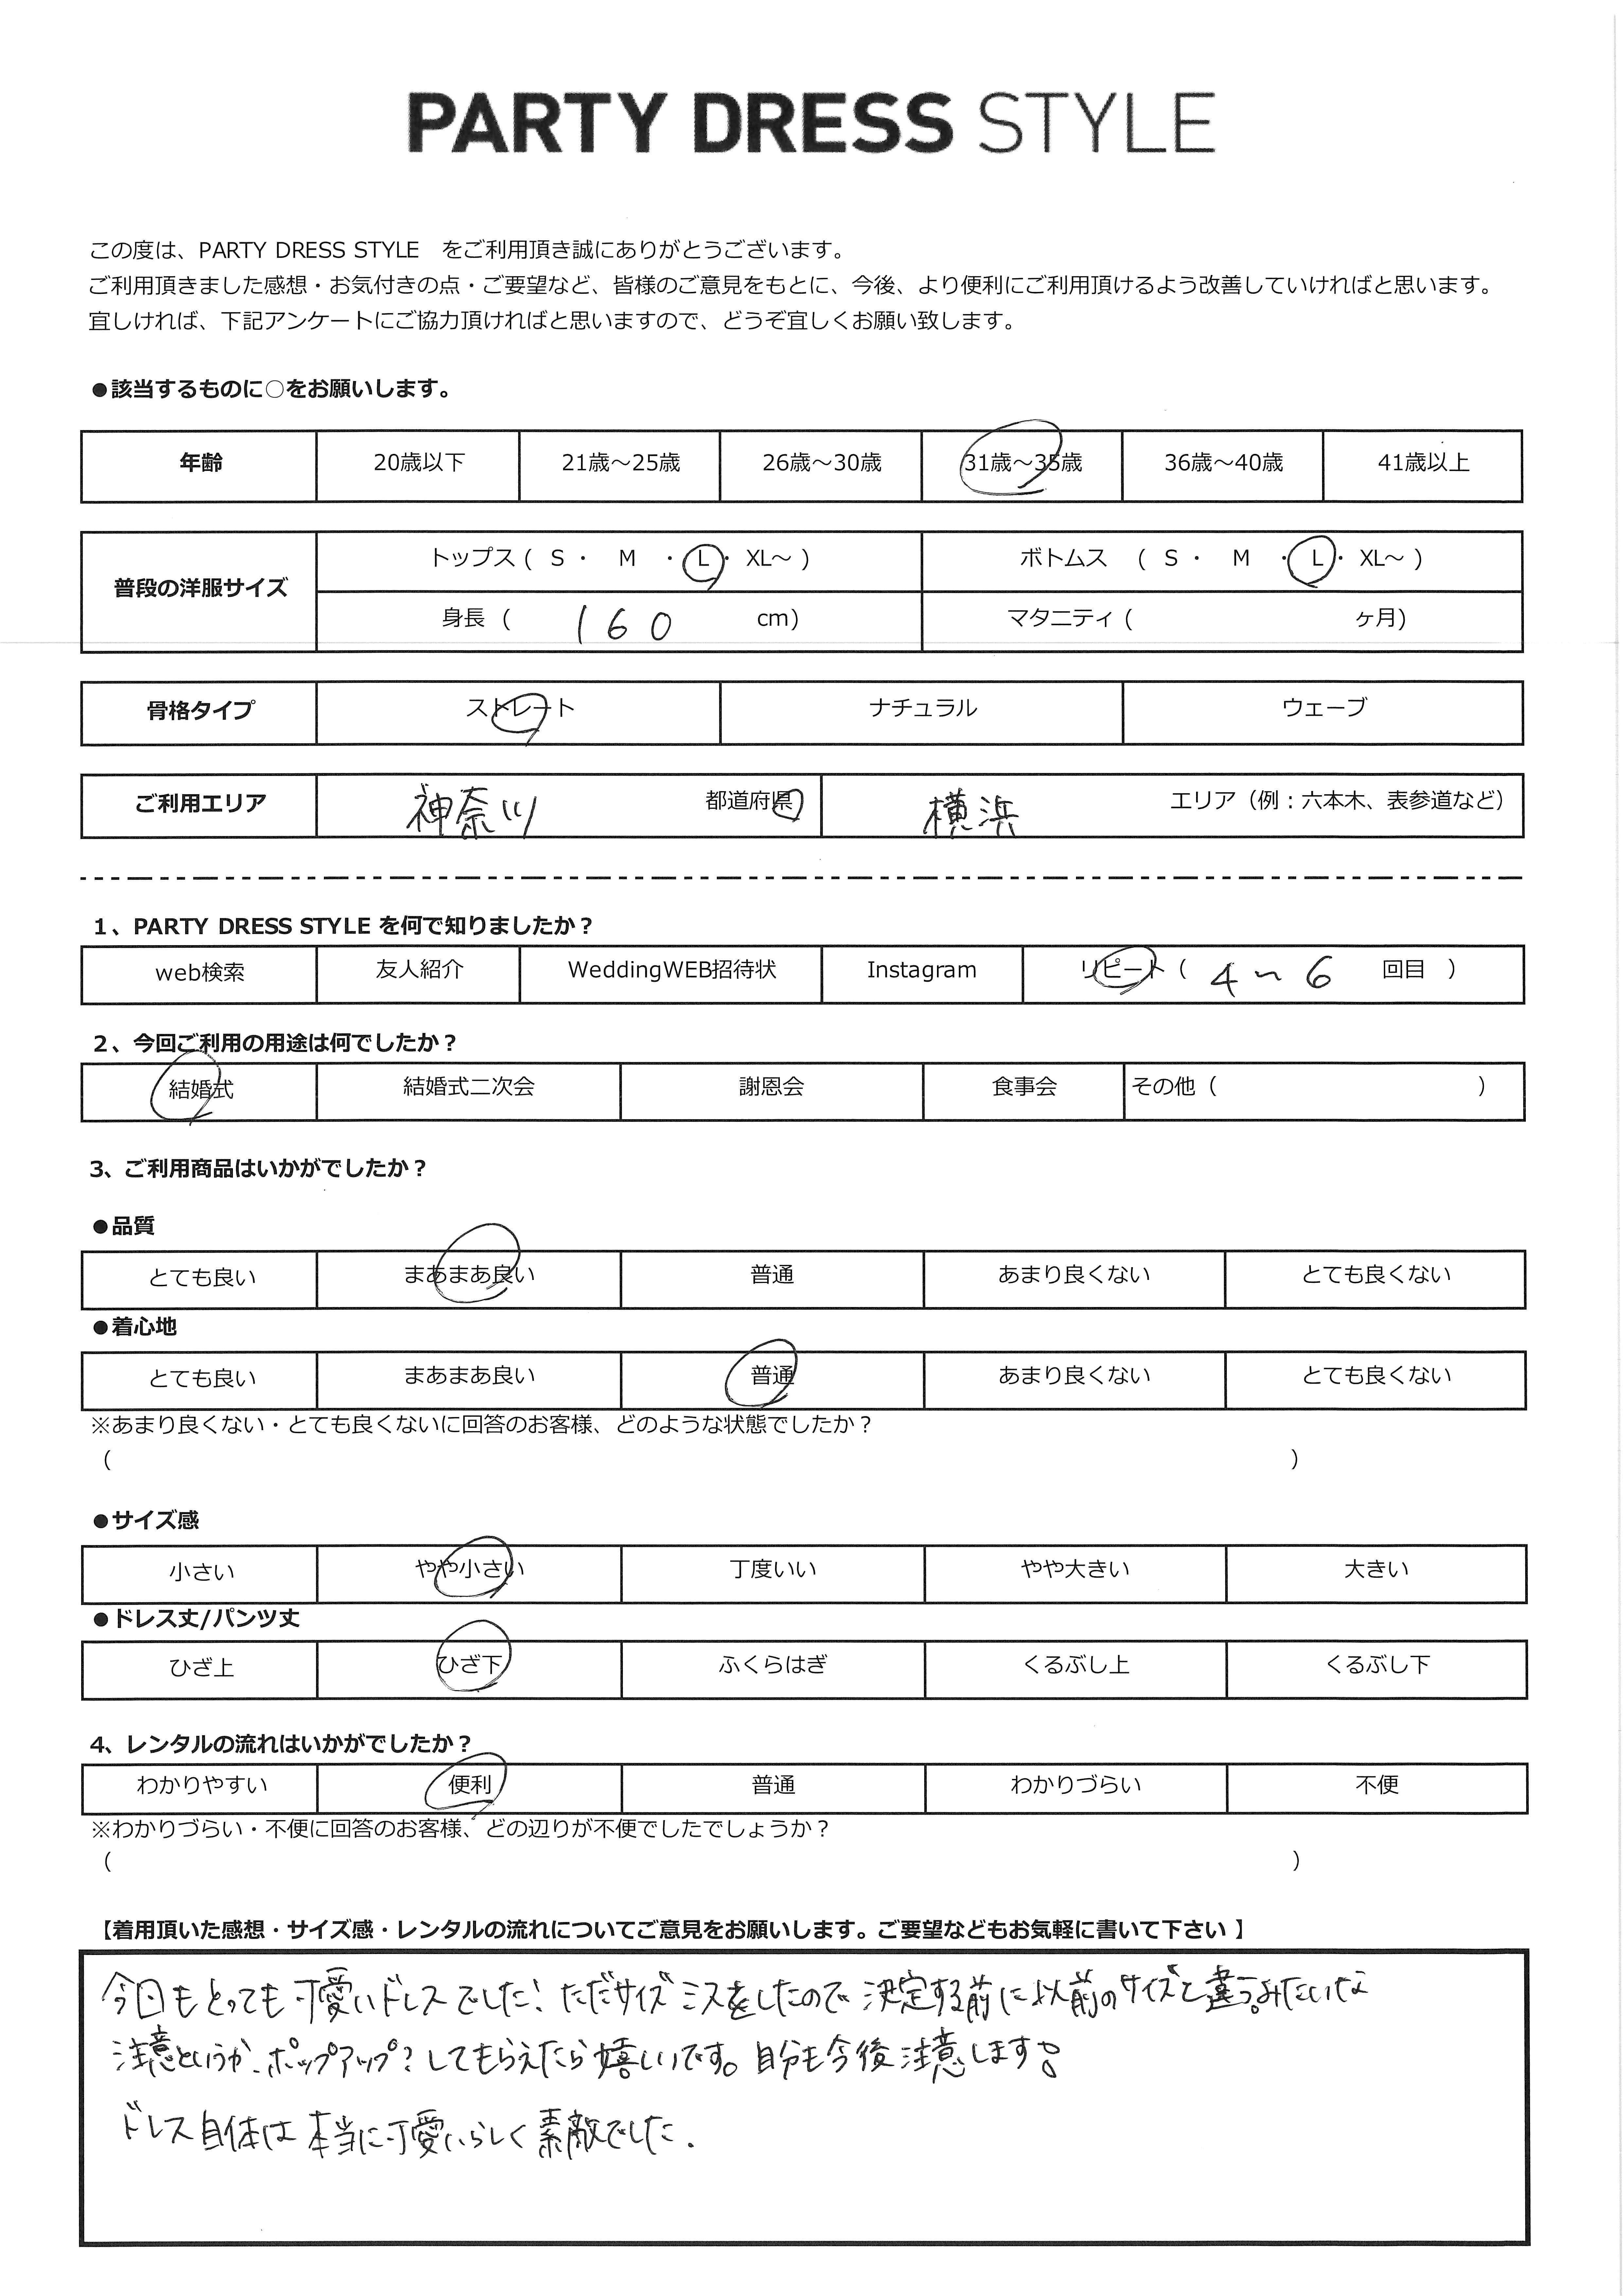 PARTY DRESS STYLE
この度は、PARTY DRESS STYLE　をご利用頂き誠にありがとうございます。
ご利用頂きました感想・お気付きの点・ご要望など、皆様のご意見をもとに、今後、より便利にご利用頂けるよう改善していければと思います。
宜しければ、下記アンケートにご協力頂ければと思いますので、どうぞ宜しくお願い致します。
●該当するものに○をお願いします。
年齢 20歳以下 21歳～25歳 26歳～30歳 31歳～35歳 36歳～40歳 41歳以上
普段の洋服サイズ トップス ( S ・ M ・ L ・ XL～ ) ボトムス ( S ・ M ・ L ・ XL～ )
身長 ( 160 cm) マタニティ ( ヶ月)
骨格タイプ ストレート ナチュラル ウェーブ
ご利用エリア 神奈川 都道府県 横浜 エリア（例：六本木、表参道など）
1、PARTY DRESS STYLE を何で知りましたか？
web検索 友人紹介 WeddingWEB招待状 Instagram リピート（ 4～6 回目 ）
2、今回ご利用の用途は何でしたか？
結婚式 結婚式二次会 謝恩会 食事会 その他（ ）
3、ご利用商品はいかがでしたか？
●品質
とても良い まあまあ良い 普通 あまり良くない とても良くない
●着心地
とても良い まあまあ良い 普通 あまり良くない とても良くない
※あまり良くない・とても良くないに回答のお客様、どのような状態でしたか？
（ ）
●サイズ感
小さい やや小さい 丁度いい やや大きい 大きい
●ドレス丈/パンツ丈
ひざ上 ひざ下 ふくらはぎ くるぶし上 くるぶし下
4、レンタルの流れはいかがでしたか？
わかりやすい 便利 普通 わかりづらい 不便
※わかりづらい・不便に回答のお客様、どの辺りが不便でしたでしょうか？
（ ）
【着用頂いた感想・サイズ感・レンタルの流れについてご意見をお願いします。ご要望などもお気軽に書いて下さい 】
今回もとっても可愛いドレスでした！ただサイズミスをしたので決定する前に以前のサイズと違う。みたいな
注意というか、ポップアップ？してもらえたら嬉しいです。自分も今後注意します！
ドレス自体は本当に可愛いらしく素敵でした.